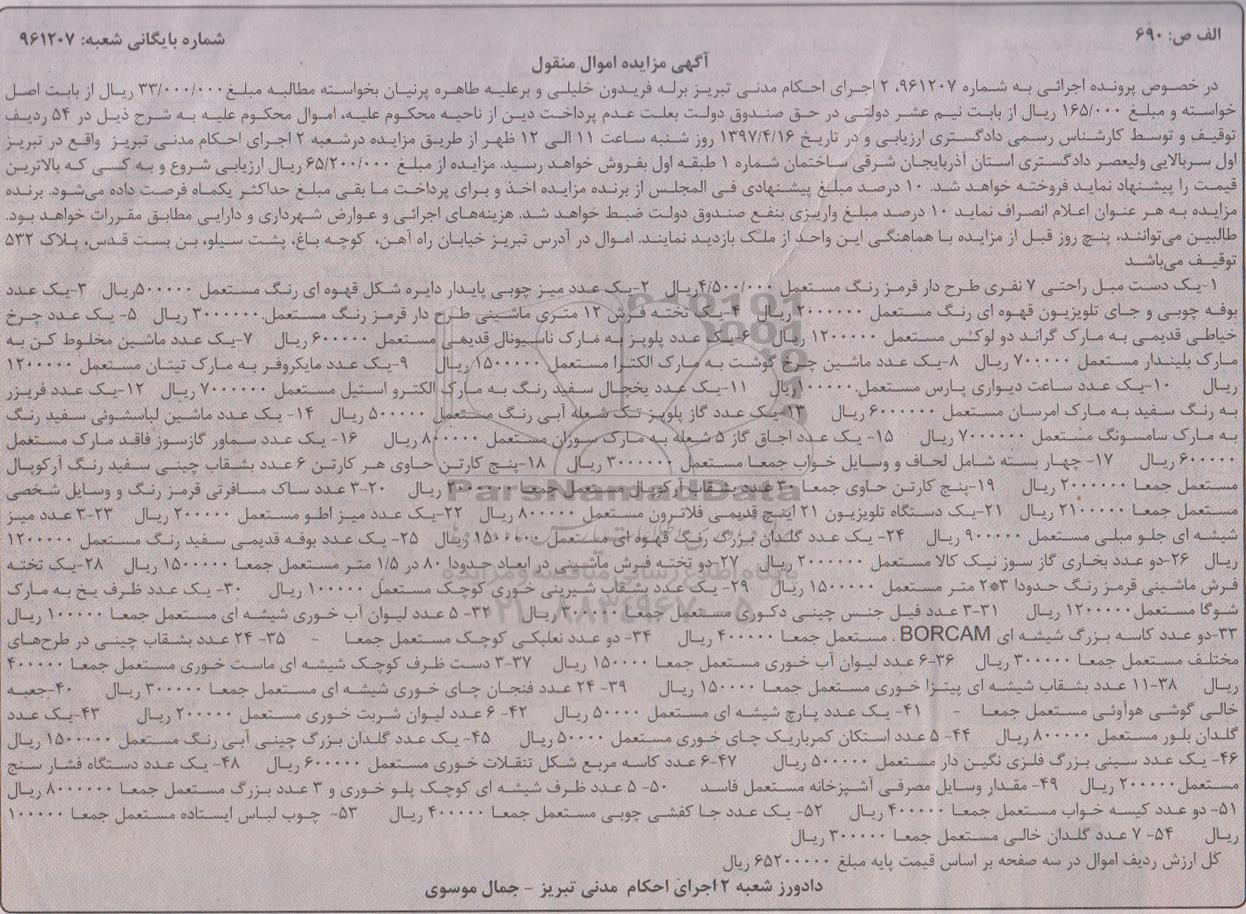 الف ص: ۶۹۰
شماره بایگانی شعبه: ۹۶۱۲۰۷
آگهی مزایده اموال منقول
در خصوص پرونده اجرائی به شماره ۹۶۱۲۰۷، ۲ اجرای احکام مدنی تبریز برله فریدون خلیلی و برعلیه طاهره پرنیان بخواسته مطالبه مبلغ ۳۳/۰۰۰/۰۰۰ ریال از بابت اصل
خواسته و مبلغ ۱۶۵/۰۰۰ ریال از بابت نیم عشر دولتی در حق صندوق دولت بعلت عدم پرداخت دین از ناحیه محکوم علیه، اموال محکوم علیه به شرح ذیل در ۵۴ ردیف
توقیف و توسط کارشناس رسمی دادگستری ارزیابی و در تاریخ ۱۳۹۷/۴/۱۶ روز شنبه ساعت ۱۱ الی ۱۲ ظهر از طریق مزایده درشعبه ۲ اجرای احکام مدنی تبریز واقع در تبریز
اول سربالایی ولیعصر دادگستری استان آذربایجان شرقی ساختمان شماره ۱ طبقه اول بفروش خواهد رسید. مزایده از مبلغ ۶۵/۲۰۰/۰۰۰ ریال ارزیابی شروع و به کسی که بالاترین
قیمت را پیشنهاد نماید فروخته خواهد شد. ۱۰ درصد مبلغ پیشنهادی فی المجلس از برنده مزایده اخذ و برای پرداخت ما بقی مبلغ حداکثر یکماه فرصت داده می‌شود. برنده
مزایده به هر عنوان اعلام انصراف نماید ۱۰ درصد مبلغ واریزی بنفع صندوق دولت ضبط خواهد شد. هزینه‌های اجرائی و عوارض شهرداری و دارایی مطابق مقررات خواهد بود.
طالبین می‌توانند، پنج روز قبل از مزایده با هماهنگی این واحد از ملک بازدید نمایند. اموال در آدرس تبریز خیابان راه آهن، کوچه باغ، پشت سیلو، بن بست قدس، پلاک ۵۳۲
توقیف می‌باشد
۱-یک دست مبل راحتی ۷ نفری طرح دار قرمز رنگ مستعمل ۴/۵۰۰/۰۰۰ریال ۲-یک عدد میز چوبی پایدار دایره شکل قهوه ای رنگ مستعمل ۵۰۰۰۰۰ریال ۳-یک عدد
بوفه چوبی و جای تلویزیون قهوه ای رنگ مستعمل ۲۰۰۰۰۰۰ ریال ۴-یک تخته فرش ۱۲ متری ماشینی طرح دار قرمز رنگ مستعمل.۳۰۰۰۰۰۰ ریال ۵- یک عدد چرخ
خیاطی قدیمی به مارک گراند دو لوکس مستعمل ۱۲۰۰۰۰۰ ریال ۶-یک عدد پلوپز به مارک ناسیونال قدیمی مستعمل ۶۰۰۰۰۰ ریال ۷-یک عدد ماشین مخلوط کن به
مارک بلیندار مستعمل ۷۰۰۰۰۰ ریال ۸-یک عدد ماشین چرخ گوشت به مارک الکترا مستعمل ۱۵۰۰۰۰۰ ریال ۹-یک عدد مایکروفر به مارک تیتان مستعمل ۱۲۰۰۰۰۰
ریال ۱۰-یک عدد ساعت دیواری پارس مستعمل.۱۰۰۰۰۰ریال ۱۱-یک عدد یخچال سفید رنگ به مارک الکترو استیل مستعمل ۷۰۰۰۰۰۰ ریال ۱۲-یک عدد فریزر
به رنگ سفید به مارک امرسان مستعمل ۶۰۰۰۰۰۰ ریال ۱۳-یک عدد گاز پلوپز تک شعله آبی رنگ مستعمل ۵۰۰۰۰۰ ریال ۱۴- یک عدد ماشین لباسشوئی سفید رنگ
به مارک سامسونگ مستعمل ۷۰۰۰۰۰۰ ریال ۱۵- یک عدد اجاق گاز ۵ شعله به مارک سوزان مستعمل ۸۰۰۰۰۰ ریال ۱۶- یک عدد سماور گازسوز فاقد مارک مستعمل
۶۰۰۰۰۰ ریال ۱۷- چهار بسته شامل لحاف و وسایل خواب جمعا مستعمل ۳۰۰۰۰۰۰ ریال ۱۸-پنج کارتن حاوی هر کارتن ۶ عدد بشقاب چینی سفید رنگ آرکوپال
مستعمل جمعا ۲۰۰۰۰۰۰ ریال ۱۹-پنج کارتن حاوی جمعا ۳۰ عدد بشقاب آرکوپال مستعمل جمعا ۲۰۰۰۰۰۰ ریال ۲۰-۳ عدد ساک مسافرتی قرمز رنگ و وسایل شخصی
مستعمل جمعا ۲۱۰۰۰۰۰ ریال ۲۱-یک دستگاه تلویزیون ۲۱ اینچ قدیمی فلاترون مستعمل ۸۰۰۰۰۰ ریال ۲۲-یک عدد میز اطو مستعمل ۲۰۰۰۰۰ ریال ۲۳-۳ عدد میز
شیشه ای جلو مبلی مستعمل ۹۰۰۰۰۰ ریال ۲۴- یک عدد گلدان بزرگ رنگ قهوه ای مستعمل ۱۵۰۰۰۰۰ ریال ۲۵- یک عدد بوفه قدیمی سفید رنگ مستعمل ۱۲۰۰۰۰۰
ریال ۲۶-دو عدد بخاری گاز سوز نیک کالا مستعمل ۲۰۰۰۰۰۰ ریال ۲۷-دو تخته فرش ماشینی در ابعاد حدودا ۸۰ در ۱/۵ متر مستعمل جمعا ۱۵۰۰۰۰۰ ریال ۲۸-یک تخته
فرش ماشینی قرمز رنگ حدودا ۳*۲ متر مستعمل ۱۵۰۰۰۰۰ ریال ۲۹- یک عدد بشقاب شیرینی خوری کوچک مستعمل ۱۰۰۰۰۰ ریال ۳۰- یک عدد ظرف یخ به مارک
شوگا مستعمل۱۲۰۰۰۰۰ ریال ۳۱-۳ عدد فیل جنس چینی دکوری مستعمل جمعا ۳۰۰۰۰۰ ریال ۳۲- ۵ عدد لیوان آب خوری شیشه ای مستعمل جمعا ۱۰۰۰۰۰ ریال
۳۳-دو عدد کاسه بزرگ شیشه ای BORCAM . مستعمل جمعا ۴۰۰۰۰۰ ریال ۳۴- دو عدد نعلبکی کوچک مستعمل جمعا - ۳۵- ۲۴ عدد بشقاب چینی در طرح‌های
مختلف مستعمل جمعا ۳۰۰۰۰۰ ریال ۳۶-۶ عدد لیوان آب خوری مستعمل جمعا ۱۵۰۰۰۰ ریال ۳۷-۳ دست ظرف کوچک شیشه ای ماست خوری مستعمل جمعا ۴۰۰۰۰۰
ریال ۳۸-۱۱ عدد بشقاب شیشه ای پیتزا خوری مستعمل جمعا ۱۵۰۰۰۰ ریال ۳۹- ۲۴ عدد فنجان چای خوری شیشه ای مستعمل جمعا ۳۰۰۰۰۰ ریال ۴۰-جعبه
خالی گوشی هوآوئی مستعمل جمعا - ۴۱- یک عدد پارچ شیشه ای مستعمل ۵۰۰۰۰ ریال ۴۲- ۶ عدد لیوان شربت خوری مستعمل ۲۰۰۰۰۰ ریال ۴۳-یک عدد
گلدان بلور مستعمل ۸۰۰۰۰۰ ریال ۴۴- ۵ عدد استکان کمرباریک چای خوری مستعمل ۵۰۰۰۰ ریال ۴۵- یک عدد گلدان بزرگ چینی آبی رنگ مستعمل ۱۵۰۰۰۰۰ ریال
۴۶- یک عدد سینی بزرگ فلزی نگین دار مستعمل ۵۰۰۰۰۰ ریال ۴۷-۶ عدد کاسه مربع شکل تنقلات خوری مستعمل ۶۰۰۰۰۰ ریال ۴۸- یک عدد دستگاه فشار سنج
مستعمل۲۰۰۰۰۰ ریال ۴۹- مقدار وسایل مصرفی آشپزخانه مستعمل فاسد ۵۰- ۵ عدد ظرف شیشه ای کوچک پلو خوری و ۳ عدد بزرگ مستعمل جمعا ۸۰۰۰۰۰۰ ریال
۵۱- دو عدد کیسه خواب مستعمل جمعا ۴۰۰۰۰۰ ریال ۵۲- یک عدد جا کفشی چوبی مستعمل جمعا ۴۰۰۰۰۰ ریال ۵۳- چوب لباس ایستاده مستعمل جمعا ۱۰۰۰۰۰
ریال ۵۴- ۷ عدد گلدان خالی مستعمل جمعا ۳۰۰۰۰۰ ریال
کل ارزش ردیف اموال در سه صفحه بر اساس قیمت پایه مبلغ ۶۵۲۰۰۰۰۰ ریال
دادورز شعبه ۲ اجرای احکام مدنی تبریز - جمال موسوی
ParsNamadData